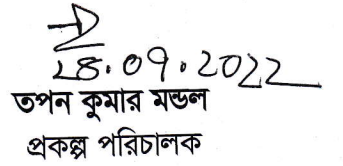 28.09.2022
তপন কুমার মন্ডল
প্রকল্প পরিচালক